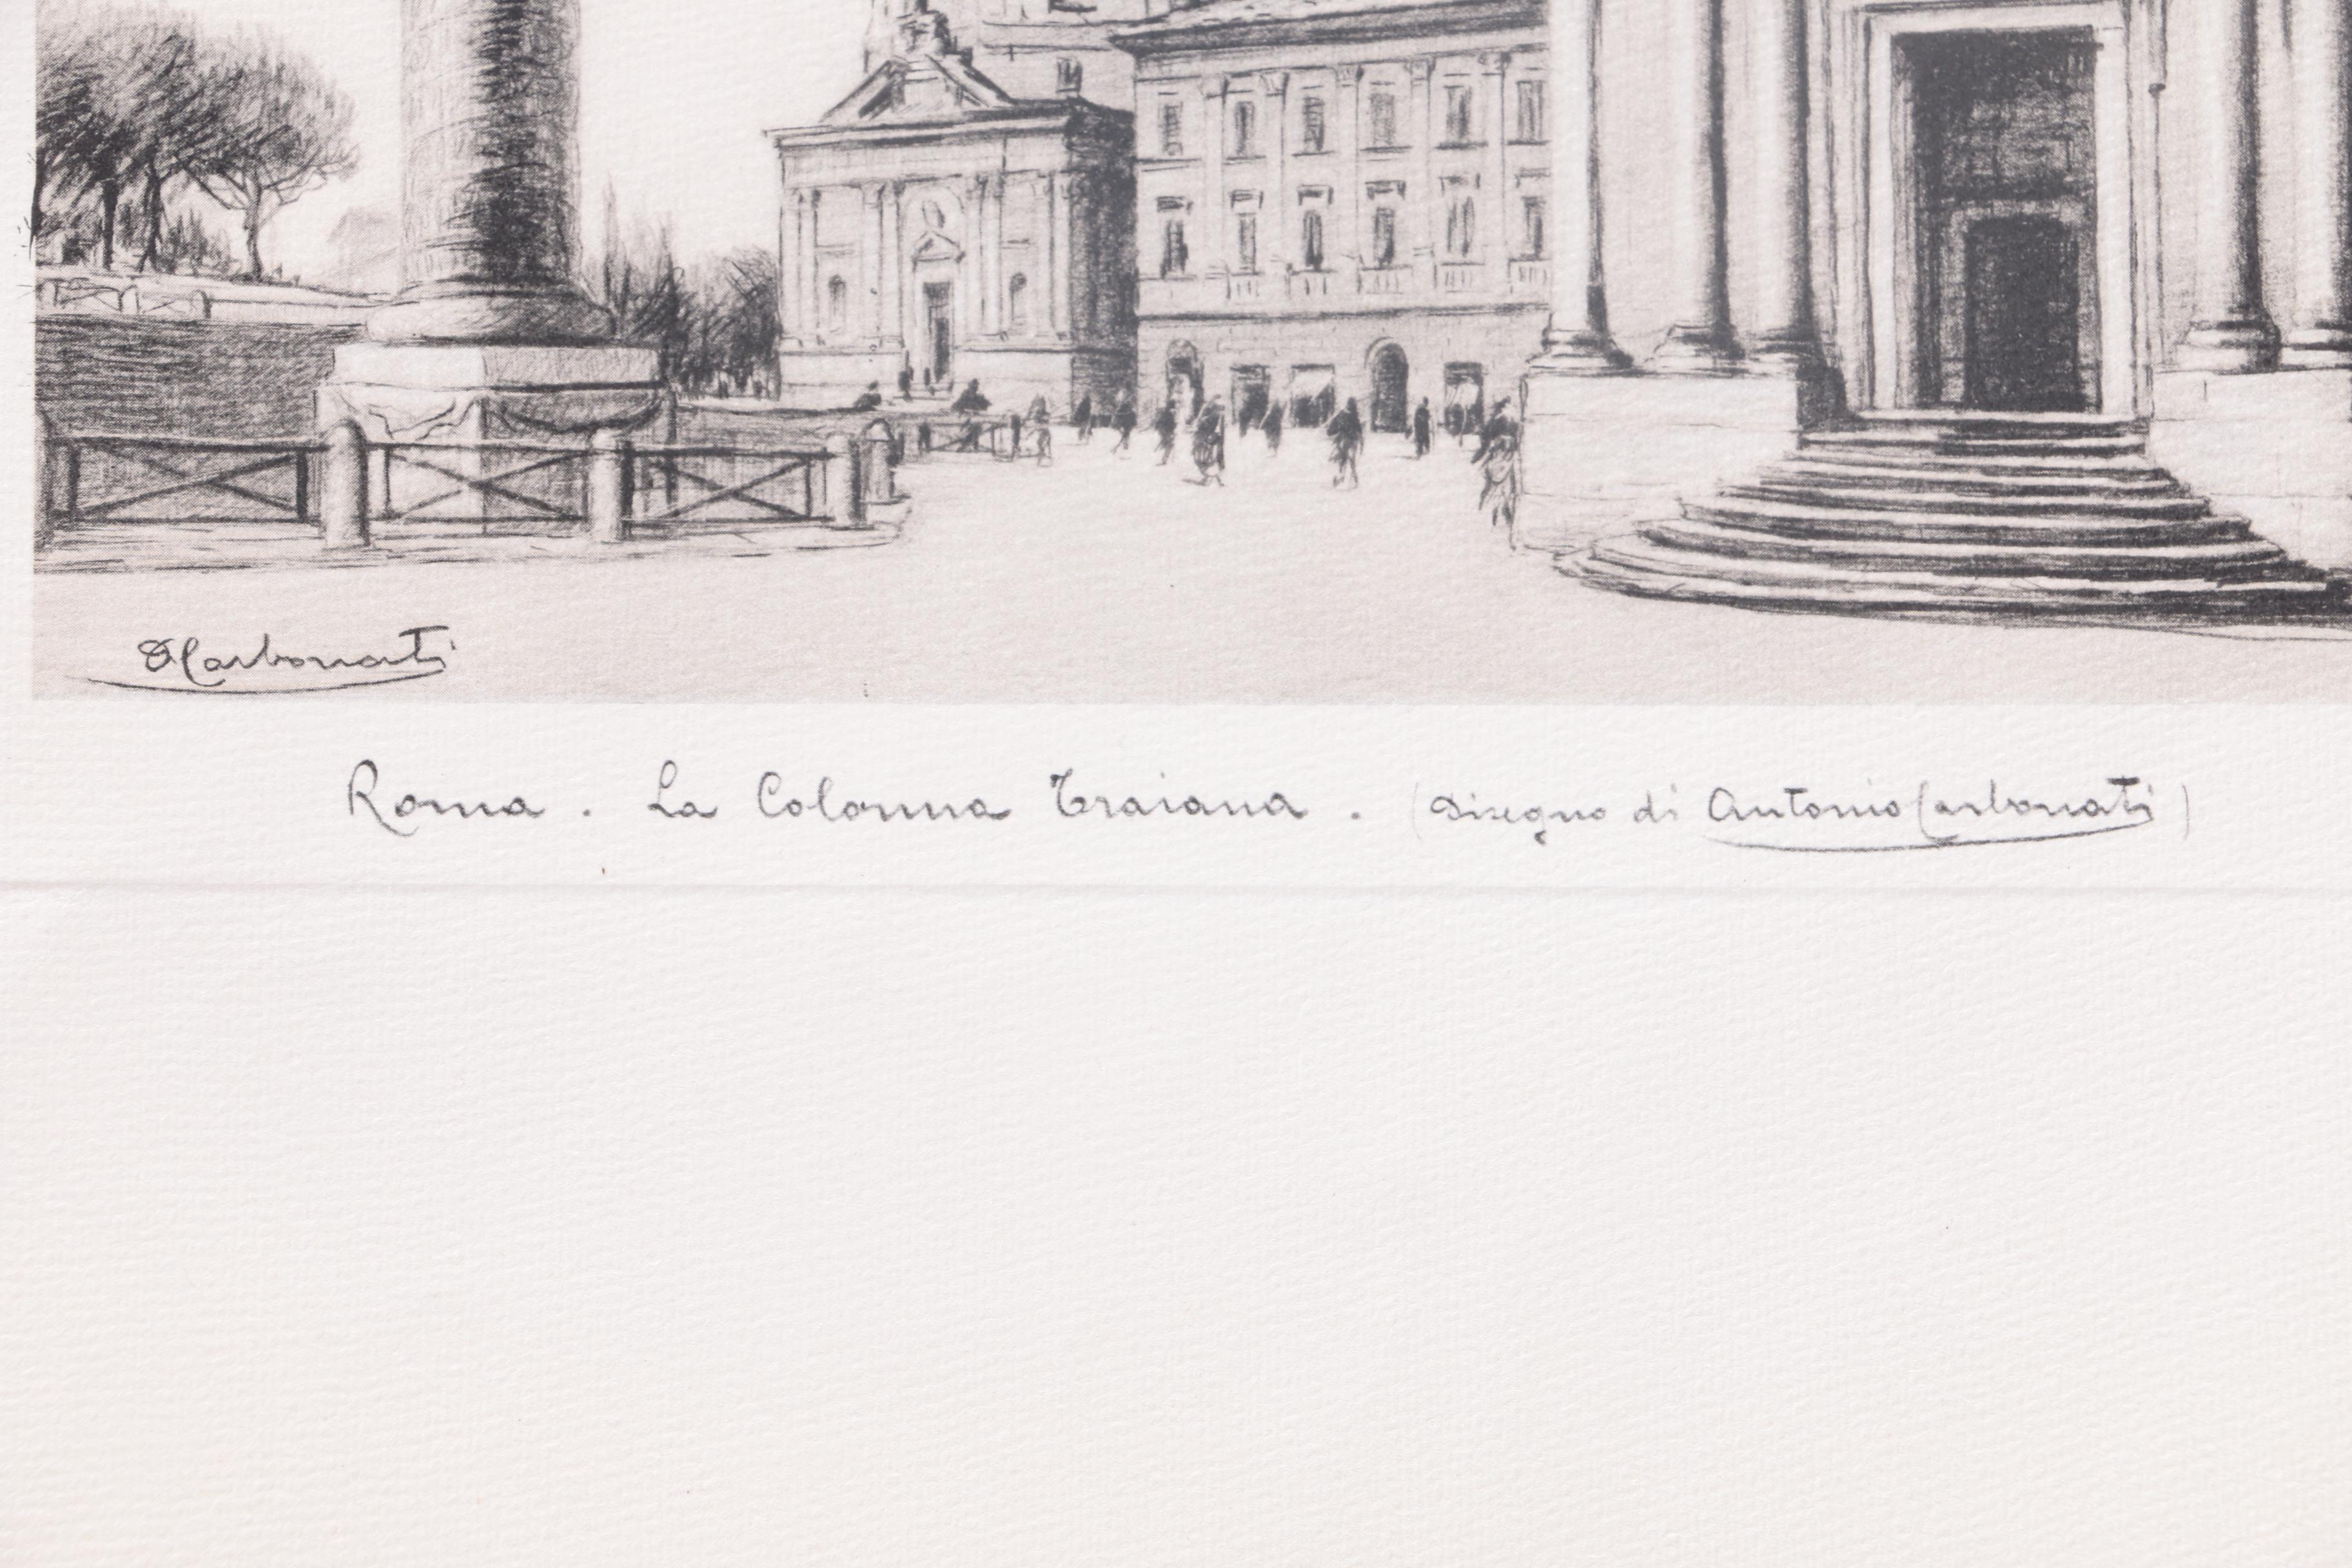 ACarbonati
Roma . La Colonna Traiana . (Disegno di Antonio Carbonati)